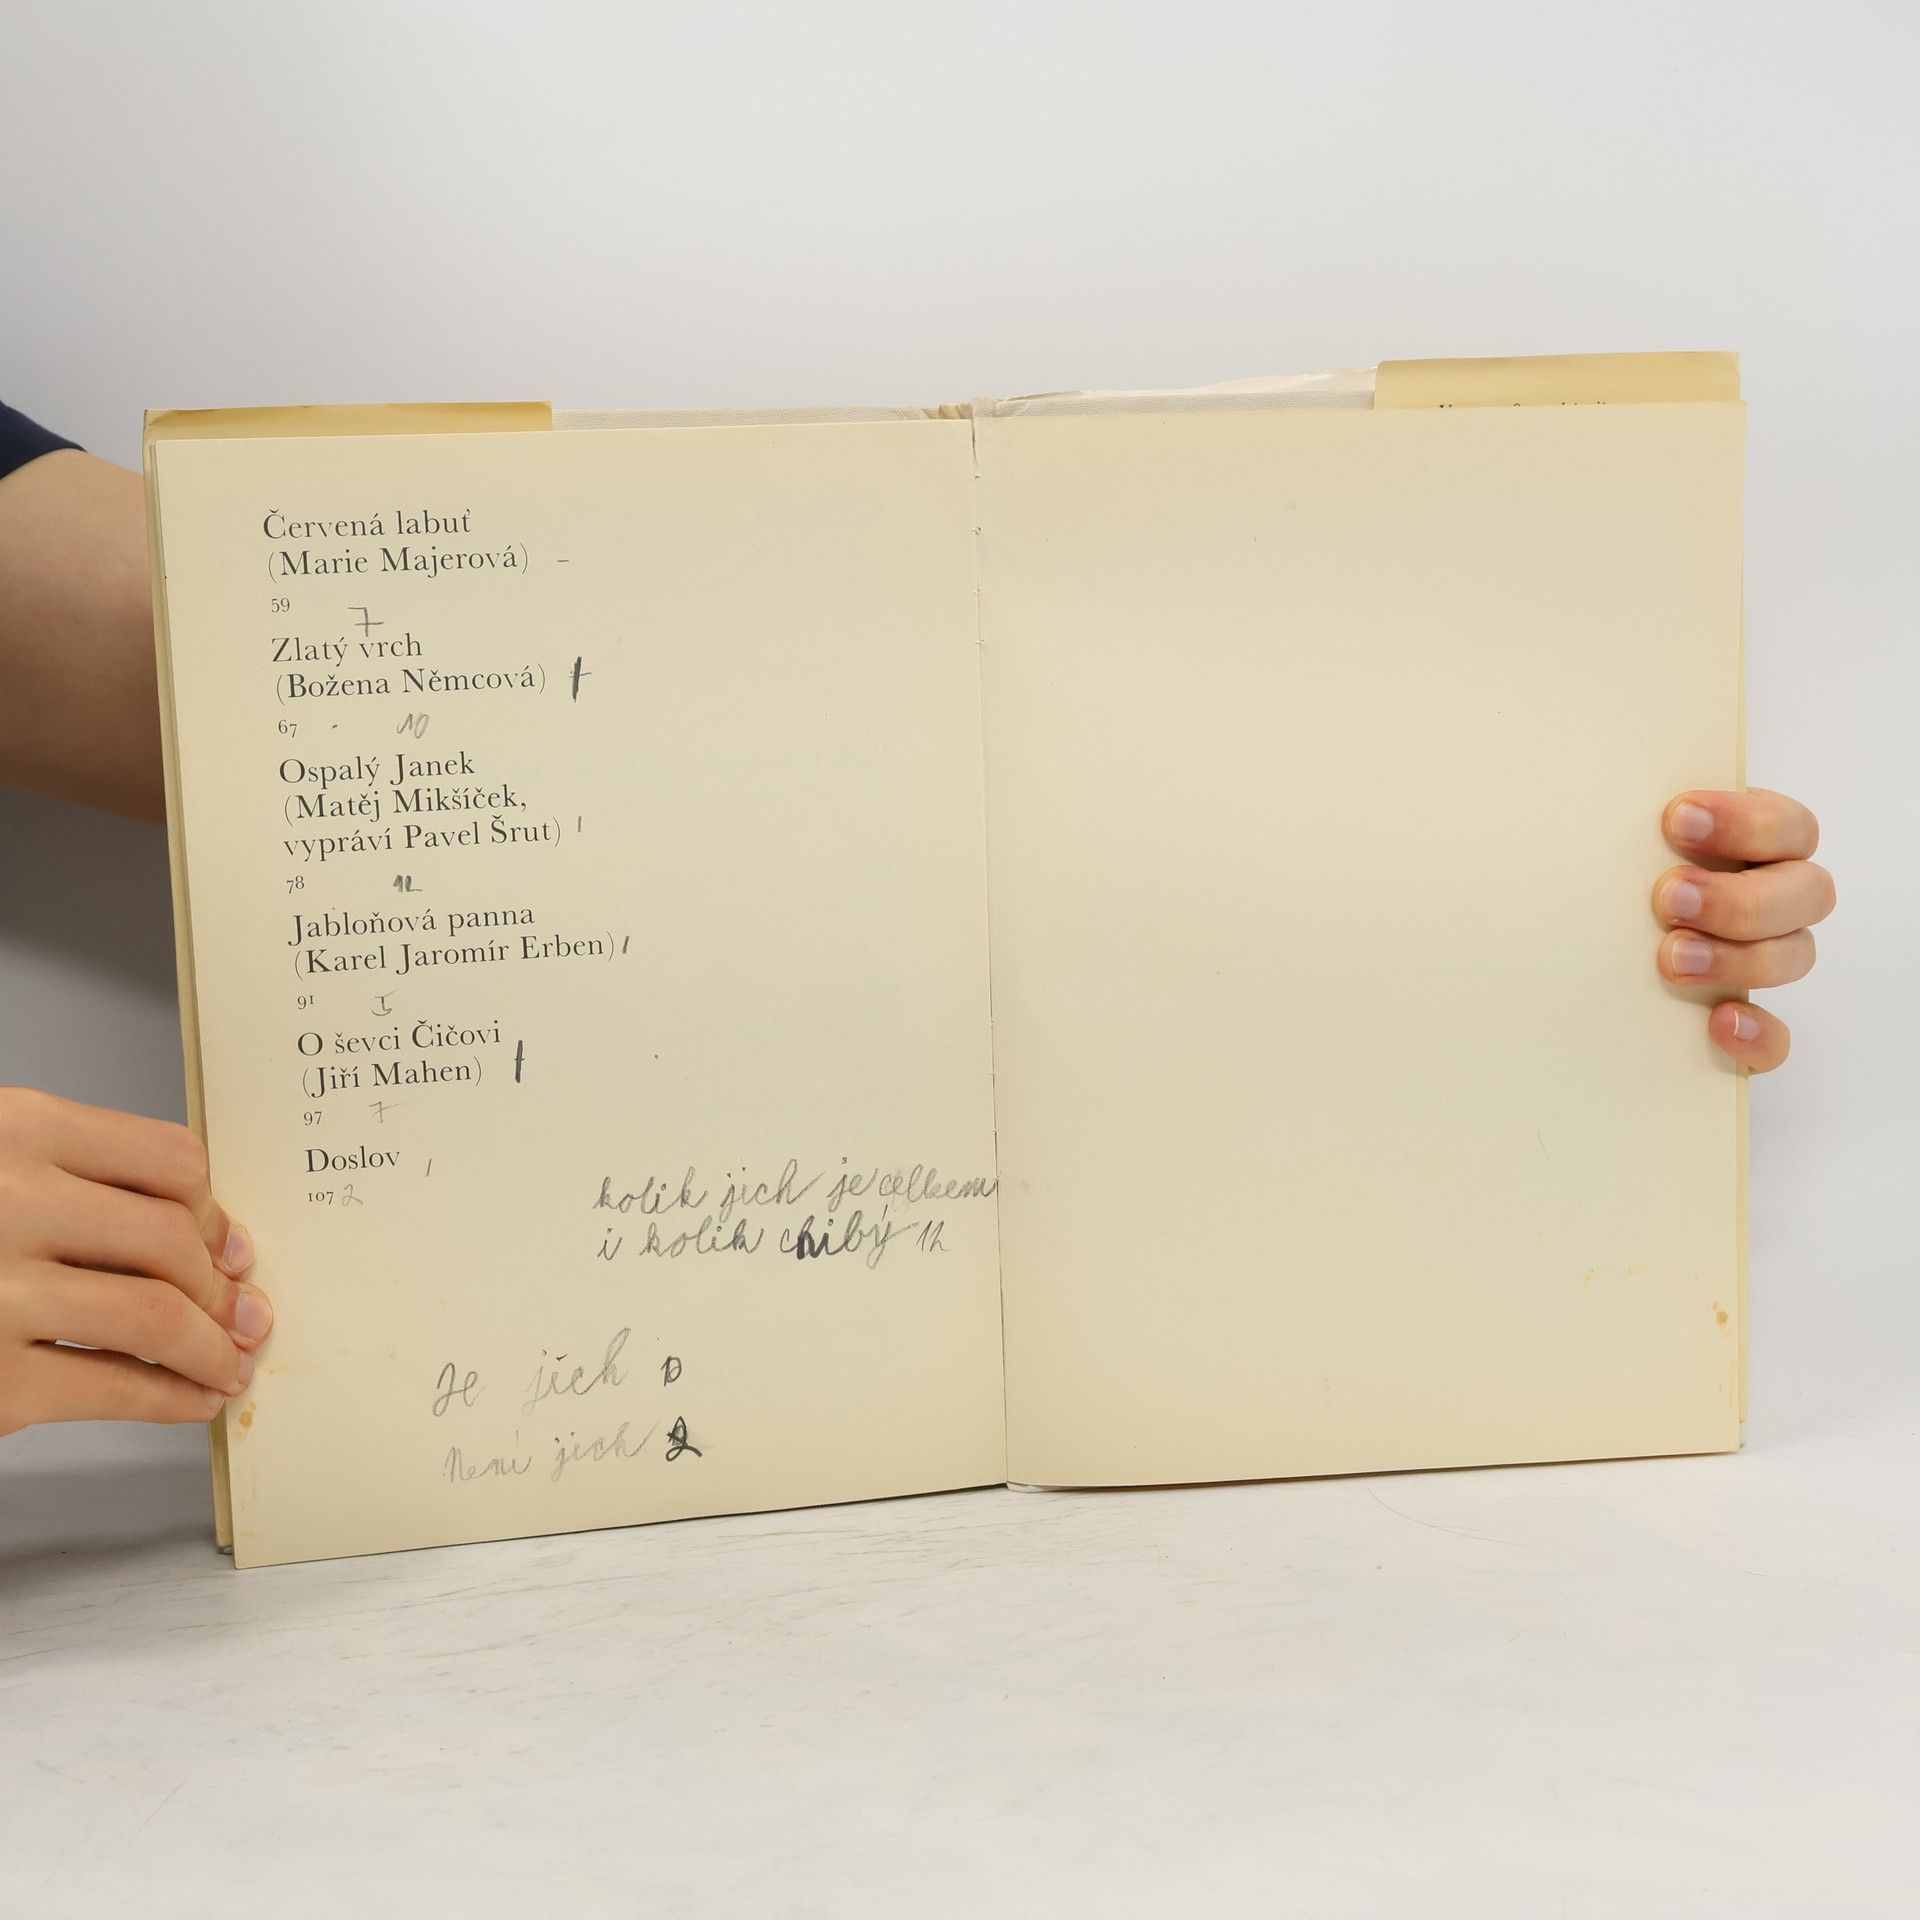 Červená labuť
(Marie Majerová) –
59
7
Zlatý vrch
(Božena Němcová)
67 10
Ospalý Janek
(Matěj Mikšíček,
vypráví Pavel Šrut) /
78 12
Jabloňová panna
(Karel Jaromír Erben) /
91
O ševci Čičovi
(Jiří Mahen)
97 7
Doslov /
107 2
kolik jich je celkem
i kolik chibý 12
Je jich
Není jich 2